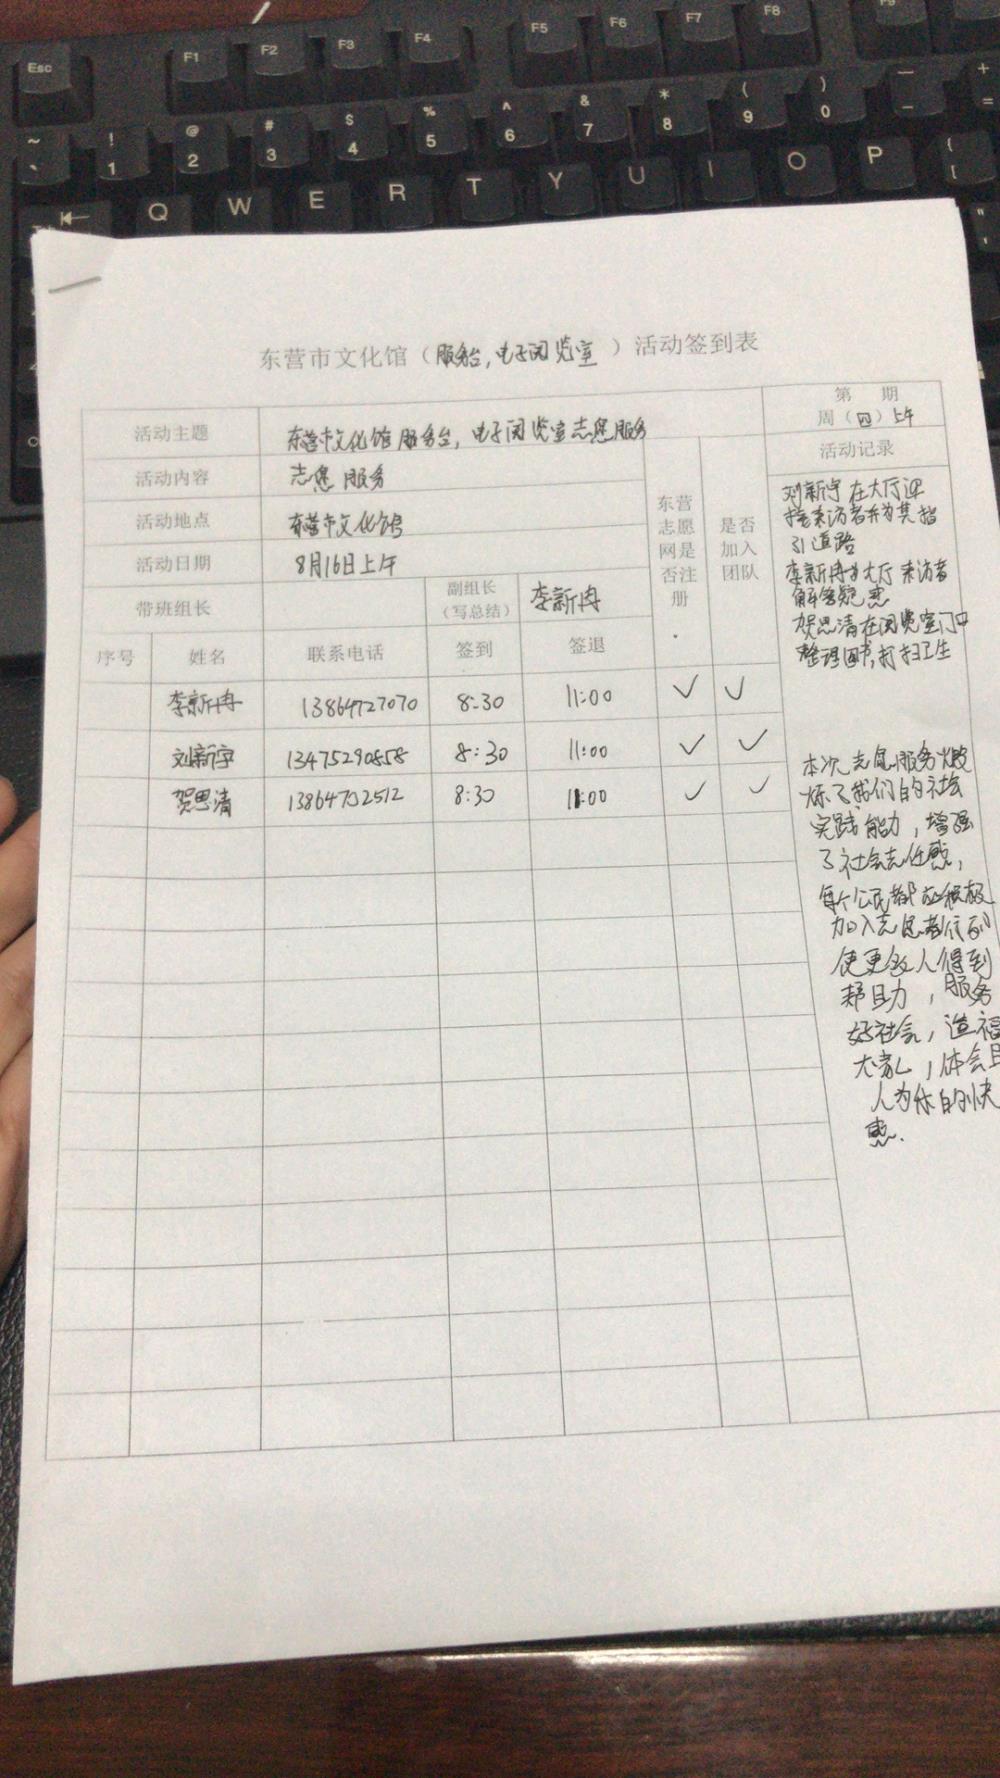 Esc F1 F2 F3 F4 F5 F6 F7 F8 F9
~ ! @ # $ % ^ & * ( ) — +
` 1 2 3 4 5 6 7 8 9 0 - =
Q W E R T Y U I O P { [
东营市文化馆（服务台,电子阅览室）活动签到表
活动主题 东营市文化馆服务台,电子阅览室志愿服务
第 期
周（四）上午
活动内容 志愿服务
活动地点 东营市文化馆
活动日期 8月16日上午
带班组长
副组长
（写总结）
李新冉
东营
志愿
网是
否注
册
是否
加入
团队
活动记录
序号 姓名 联系电话 签到 签退
李新冉 13864727070 8:30 11:00 ✓ ✓
刘新宇 13475290858 8:30 11:00 ✓ ✓
贺思清 13864702512 8:30 11:00 ✓ ✓
刘新宇在大厅迎
接来访者并为其指
引道路
李新冉为大厅来访者
解答疑惑
贺思清在阅览室门口
整理图书,打扫卫生
本次志愿服务锻
炼了我们的社会
实践能力，增强
了社会责任感，
每个公民都应积极
加入志愿者行列
使更多人得到
帮助，服务
好社会，造福
大家，体会
人为你的快
感.